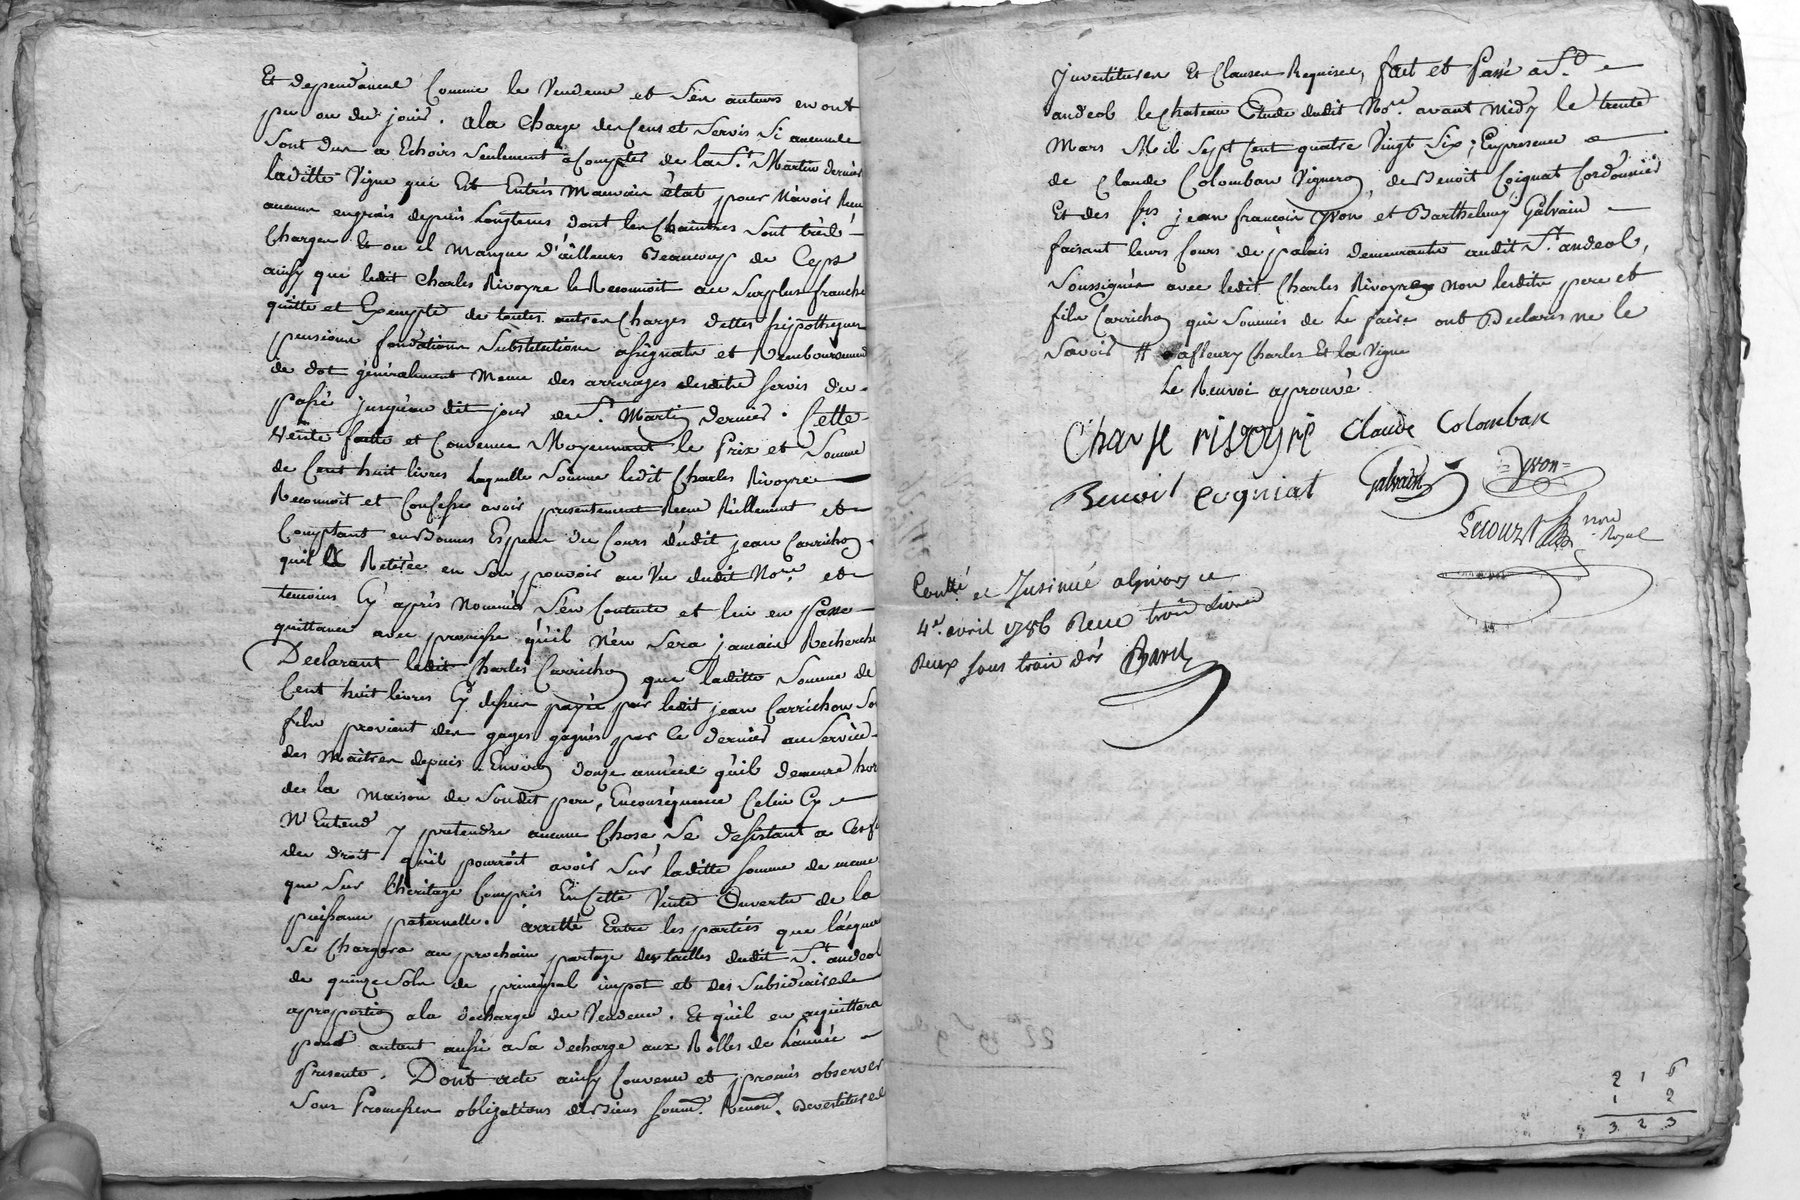 Et dependances Comme le Vendeur et Ses auteurs en ont
pu ou du jouir. ala Charge des Cens et Servis Si aucuns
Sont dus a Echoirs Seulement a Compter de la St. Martin dernier
laditte Vigne qui Est Entrès Mauvais état pour N'avoir Reçu
aucuns engrais depuis Longtems dont les Chaintres Sont très
Charges Et ou il Manque d'ailleurs Beaucoup de Ceps
ainsy que ledit Charles Rivoyre le Reconnoit au Surplus franche
quitte et Exempte de toutes autres Charges dettes hipotheques
pensions fondations Substitutions assignats et Remboursement
de dot généralement Meme des arrerages desdits Servis du
passé jusqu'au dit jour de St. Martin dernier. Cette
Vente faitte et Convenue Moyennant le Prix et Somme
de Cent huit livres Laquelle Somme ledit Charles Rivoyre
Reconnoit et Confesse avoir presentement Reçue Réellement et
Comptant en Bonnes Especes du Cours dudit jean Carrichon
quil a Retirée en Son pouvoir au Vu dudit Nore. et
temoins Cy après Nommés S'en Contente et lui en passe
quittance avec promesse qu'il N'en Sera jamais Recherché
Declarant ledit Charles Carrichon que laditte Somme de
Cent huit livres Cy dessus payée par ledit jean Carrichon So
fils provient des gages gagnés par le dernier au Service
des Maitres depuis Environ douze années qu'il demeure hor
de la Maison de Sondit pere, Enconséquence Celui Cy
N'Entend y pretendre aucune Chose Se desistant a Cet
du droit qu'il pourroit avoir Sur laditte Somme de meme
que Sur l'heritage Compris En Cette Vente Ouverte de la
puissance paternelle. arretté Entre les parties que l'acquer
Se Chargera au prochain partage des tailles dudit St. andeol
de quinze Sols de principal impot et des Subsidiaires
aproportion ala decharge du Vendeur. Et qu'il en acquittera
pour autant aussi a Sa decharge aux Rolles de L'année
presente. Dont acte ainsy Convenu et promis observer
Sous Promesses obligations de Biens Soum. Renon. devestitures
Jnvestitures Et Clauses Requises, fait et Passé a St.
andeol le chateau Etude dudit Nore. avant Midy le trente
Mars Mil Sept Cent quatre Vingt Six; En presence
de Claude Colomban Vigneron, de Benoit Coignat Cordonnier
Et des srs jean francois Yvon et Barthelemy Galvain
faisant leurs Cours de palais demeurants audit St. andeol,
Soussignés avec ledit Charles Rivoyre non lesdits pere et
fils Carrichon qui Sommés de Le faire ont Declarés ne le
Savoir # Charles Et la Vigne
Le Renvoi aprouvé
Charle risoyre Claude Colomban
Benoit cogniat Galvain =Yvon=
nore Royal
Contlé et Insinué
4e. avril 1786 Reçu trois livres
deux sous trois drs
2 1 6
1 2
3 2 3